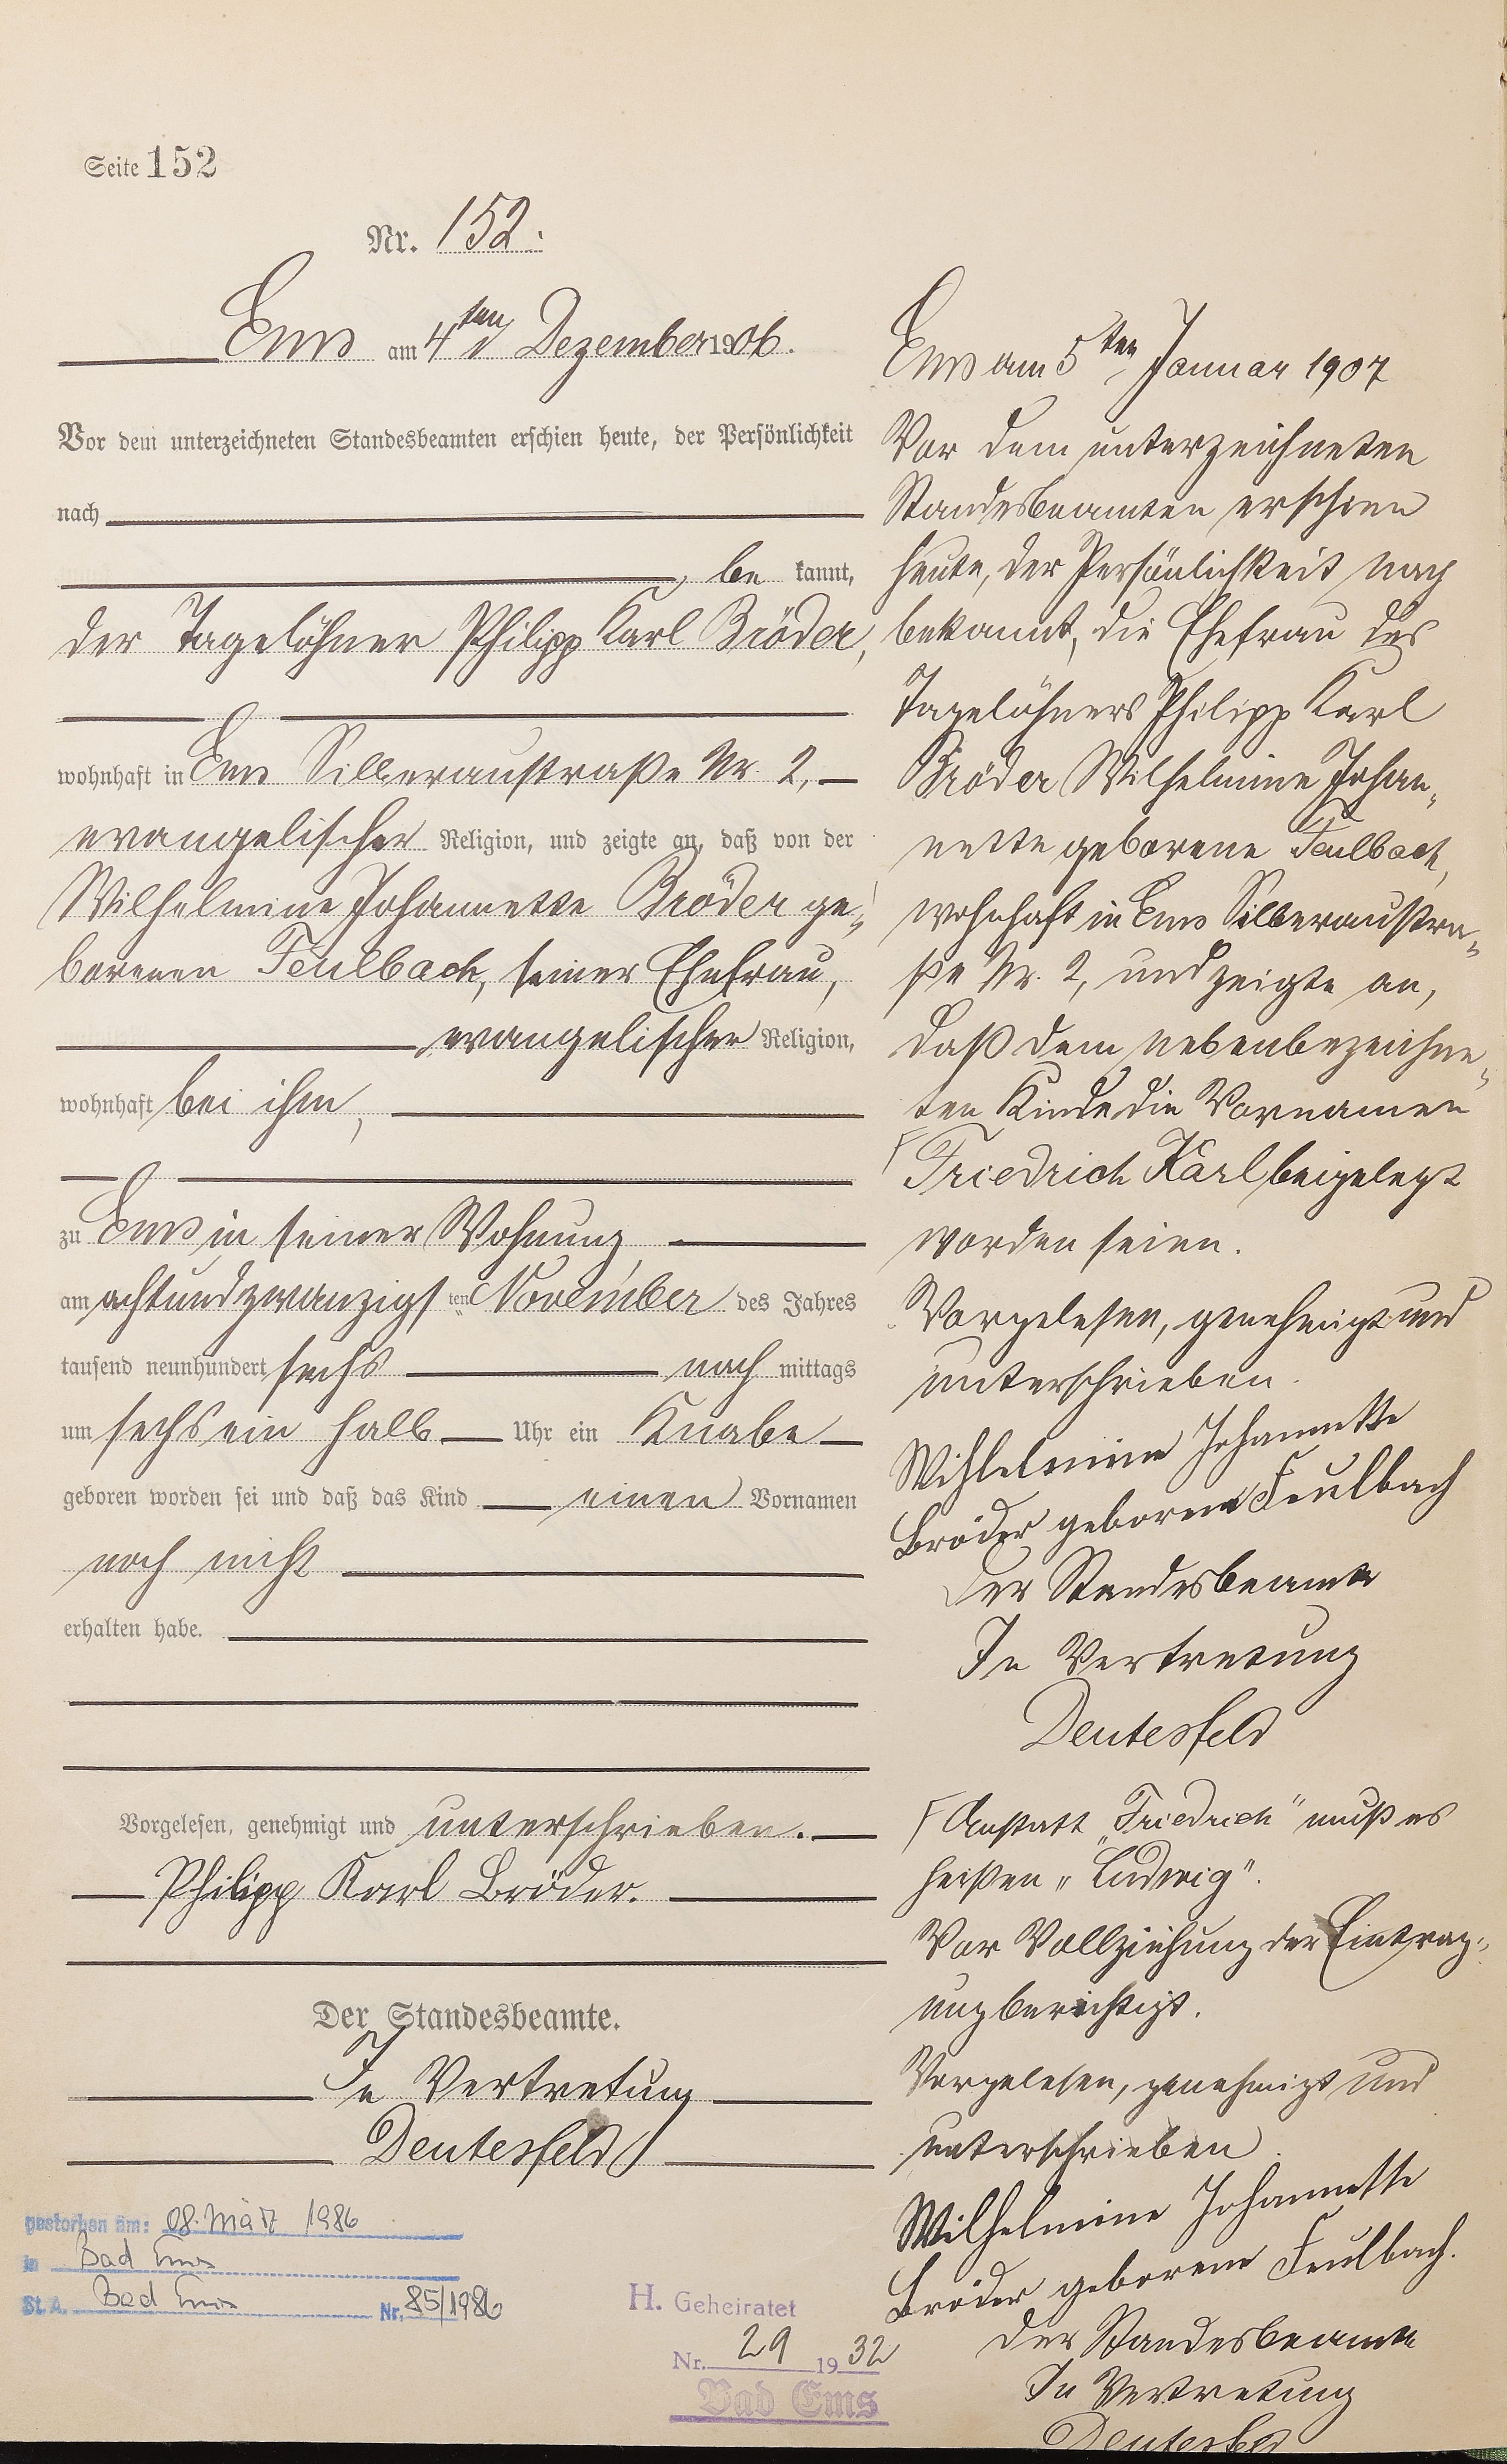 Seite 152
Nr. 152.
Ems am 4ten Dezember 1906.
Vor dem unterzeichneten Standesbeamten erschien heute, der Persönlichkeit
nach
, be kannt,
der Tagelöhner Philipp Karl Bröder,
wohnhaft in Ems Silberaustraße Nr. 2,
evangelischer Religion, und zeigte an, daß von der
Wilhelmine Johannette Bröder ge-
borenen Feulbach, seiner Ehefrau,
evangelischer Religion,
wohnhaft bei ihm,
zu Ems in seiner Wohnung
am achtundzwanzigsten November des Jahres
tausend neunhundert sechs nach mittags
um sechs ein halb Uhr ein Knabe
geboren worden sei und daß das Kind einen Vornamen
noch nicht
erhalten habe.
Vorgelesen, genehmigt und unterschrieben.
Philipp Karl Bröder.
Der Standesbeamte.
In Vertretung
Deutesfeld
gestorben am: 08. März 1986
in Bad Ems
St. A. Bad Ems Nr. 85/1986
H. Geheiratet
Nr. 29 1932
Bad Ems
Ems am 5ten Januar 1907
Vor dem unterzeichneten
Standesbeamten erschien
heute, der Persönlichkeit nach
bekannt, die Ehefrau des
Tagelöhners Philipp Karl
Bröder Wilhelmine Johan-
nette geborene Feulbach,
wohnhaft in Ems Silberaustra-
ße Nr. 2, und zeigte an,
daß dem nebenbezeichne-
ten Kinde die Vornamen
Friedrich Karl beigelegt
worden seien.
Vorgelesen, genehmigt und
unterschrieben.
Wihlelmine Johannette
Bröder geborene Feulbach
Der Standesbeamte
In Vertretung
Deutesfeld
Anstatt „Friedrich" muß es
heißen „Ludwig".
Vor Vollziehung der Eintrag-
ung berichtigt.
Vorgelesen, genehmigt und
unterschrieben.
Wilhelmine Johannette
Bröder geborene Feulbach.
Der Standesbeamte
In Vertretung
Deutesfeld